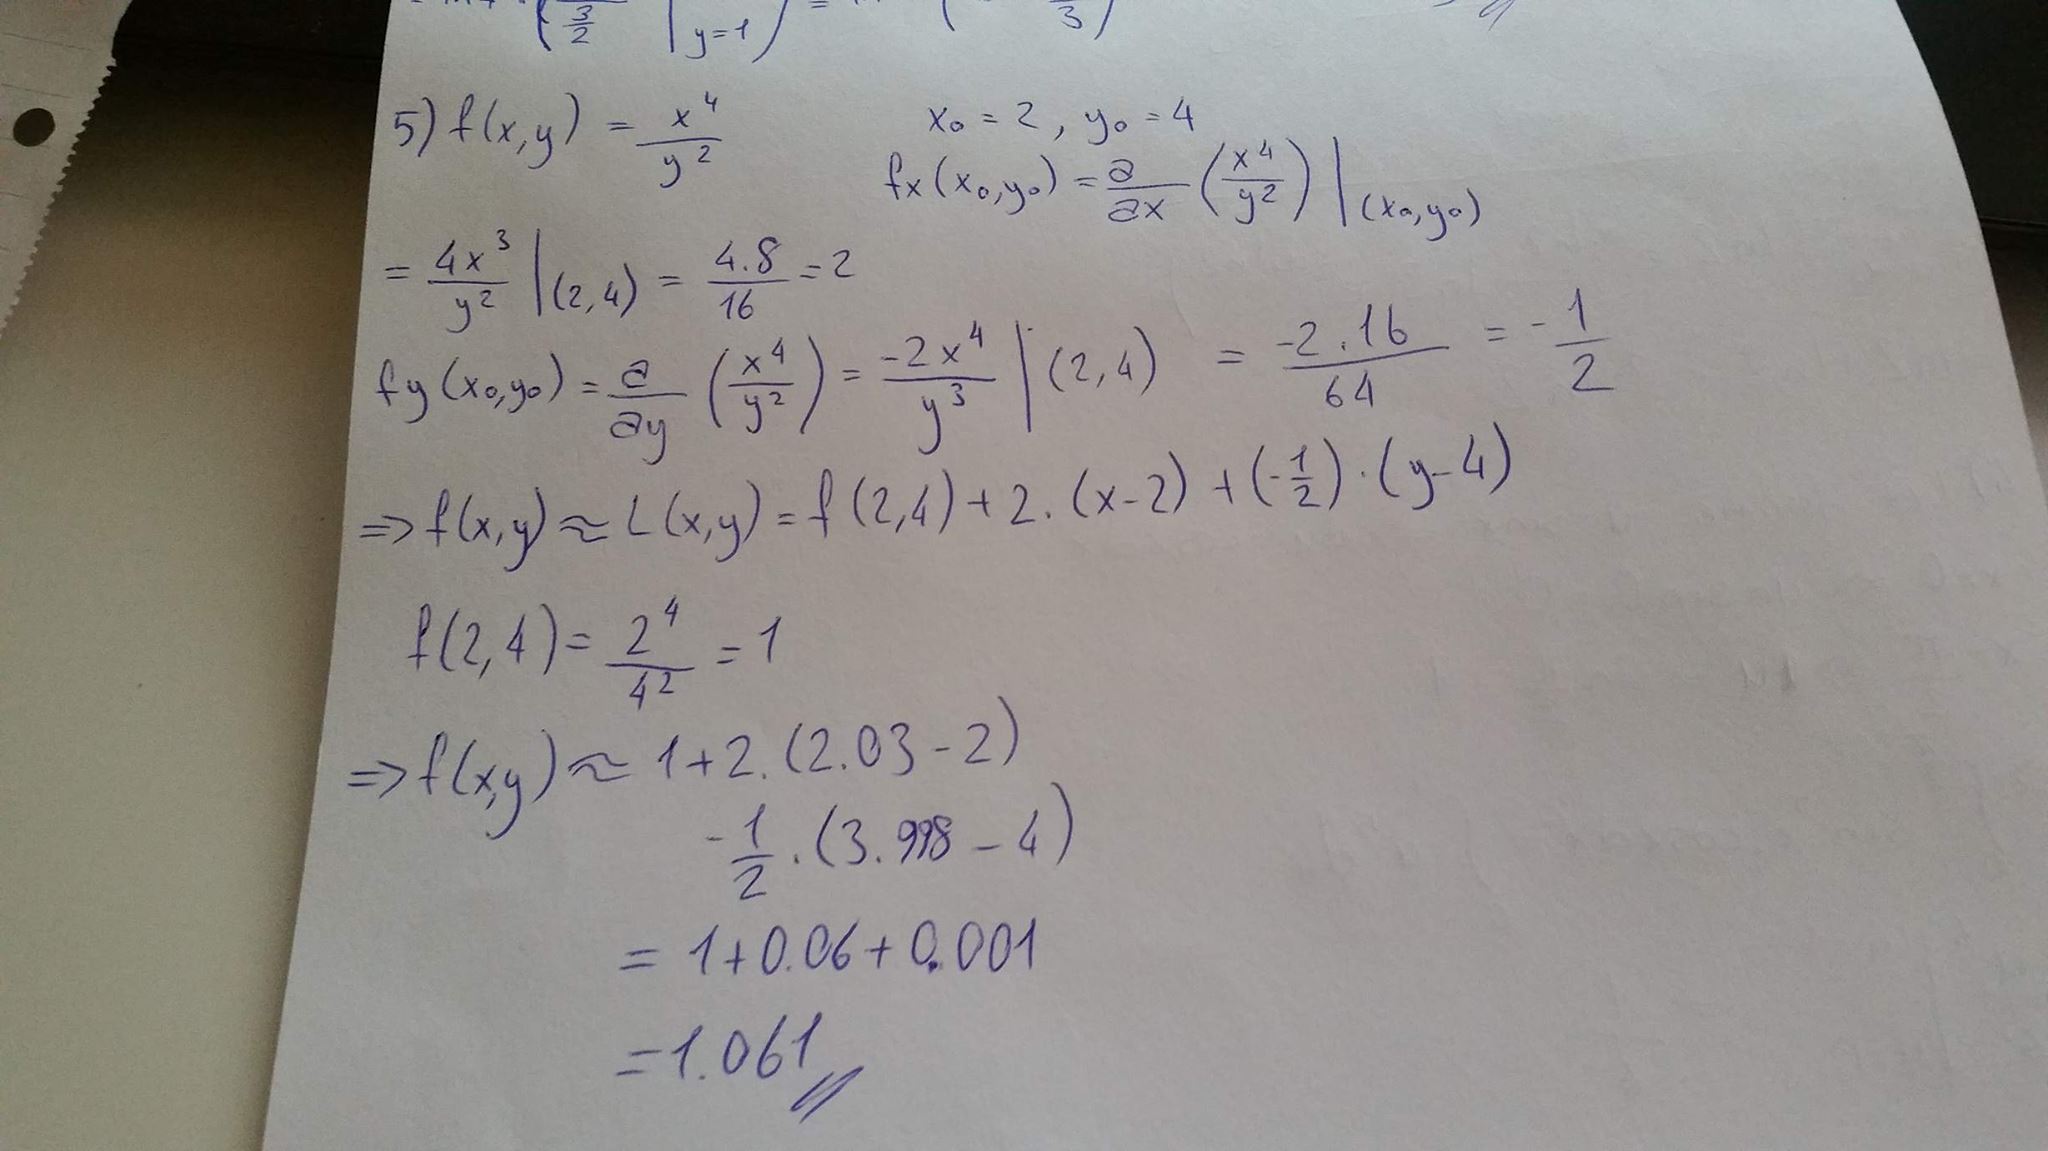 3/2 | y=1 ) = ( 3 )
5) f(x,y) = x^4/y^2    x0 = 2, y0 = 4
fx(x0,y0) = ∂/∂x (x^4/y^2) |(x0,y0)
= 4x^3/y^2 |(2,4) = 4.8/16 = 2
fy(x0,y0) = ∂/∂y (x^4/y^2) = -2x^4/y^3 |(2,4) = -2.16/64 = -1/2
=> f(x,y) ≈ L(x,y) = f(2,4) + 2.(x-2) + (-1/2).(y-4)
f(2,4) = 2^4/4^2 = 1
=> f(x,y) ≈ 1+2.(2.03-2)
-1/2.(3.998-4)
= 1+0.06+0.001
= 1.061